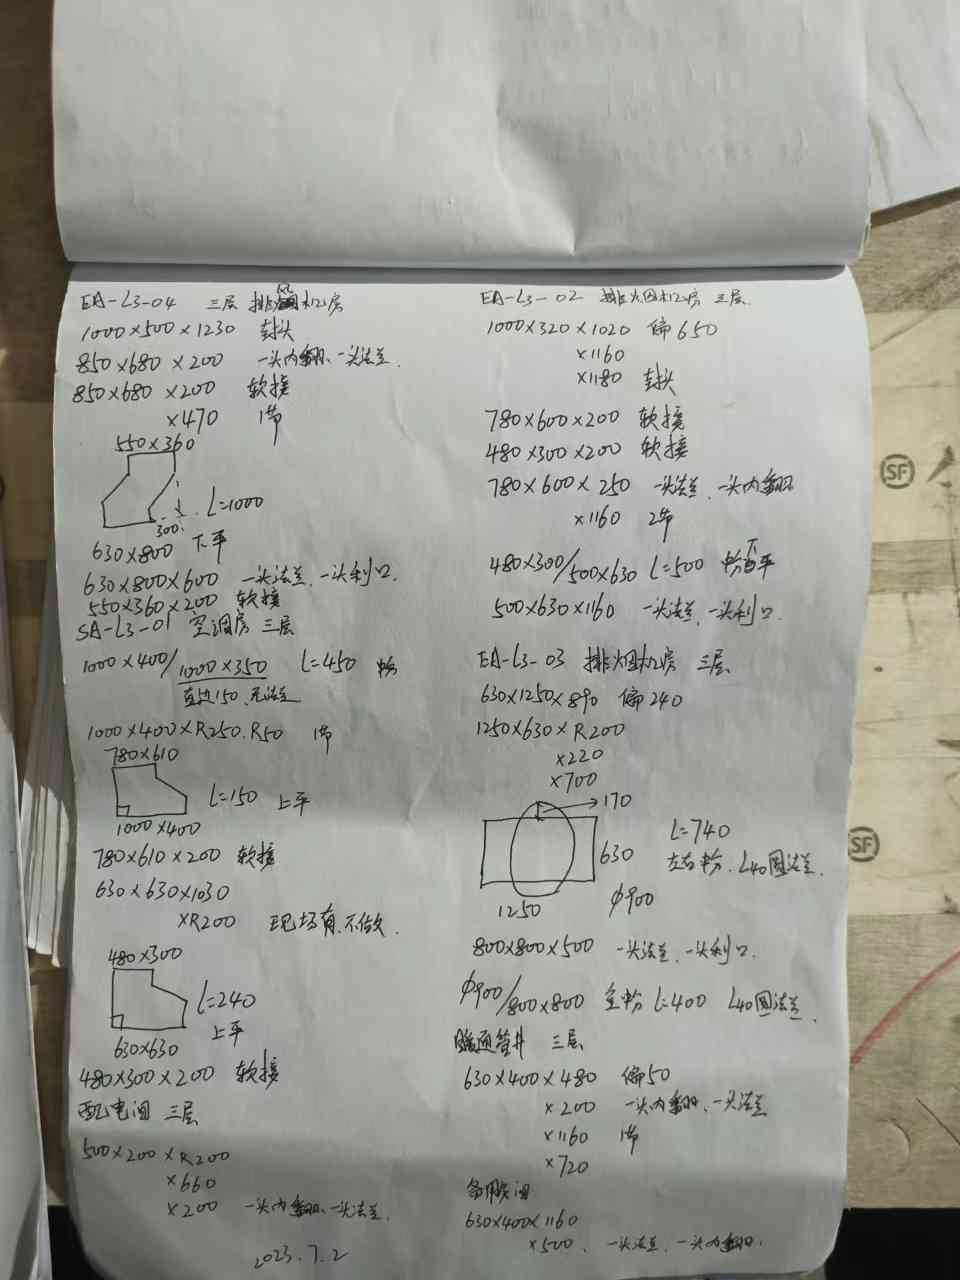 EA-L3-04 三层 排风机房
1000×500×1230 封头
850×680×200 一头内翻、一头法兰.
850×680×200 软接
×470 1节
550×360
L=1000
300
630×800 下平
630×800×600 一头法兰、一头利口.
550×360×200 软接
SA-L3-01 空调房 三层
1000×400/1000×350 L=450
直边150、无法兰
1000×400×R250.R50 1节
780×610
L=150 上平
1000×400
780×610×200 软接
630×630×1030
×R200 现场有、不做.
480×300
L=240
上平
630×630
480×300×200 软接
配电间 三层
500×200×R200
×660
×200 一头内翻、一头法兰.
2023.7.2
EA-L3-02 排烟机房 三层.
1000×320×1020 偏650
×1160
×1180 封头
780×600×200 软接
480×300×200 软接
780×600×250 一头法兰、一头内翻
×1160 2节
480×300/500×630 L=500 下平
500×630×1160 一头法兰、一头利口.
EA-L3-03 排烟机房 三层
630×1250×890 偏240
1250×630×R200
×220
×700
170
L=740
630 左右中分、L40圆法兰.
1250 φ900
800×800×500 一头法兰、一头利口.
φ900/800×800 全中分 L=400 L40圆法兰.
暖通管井 三层
630×400×480 偏50
×200 一头内翻、一头法兰
×1160 1节
×720
备用房间
630×400×1160
×500、一头法兰、一头内翻.
SF
SF